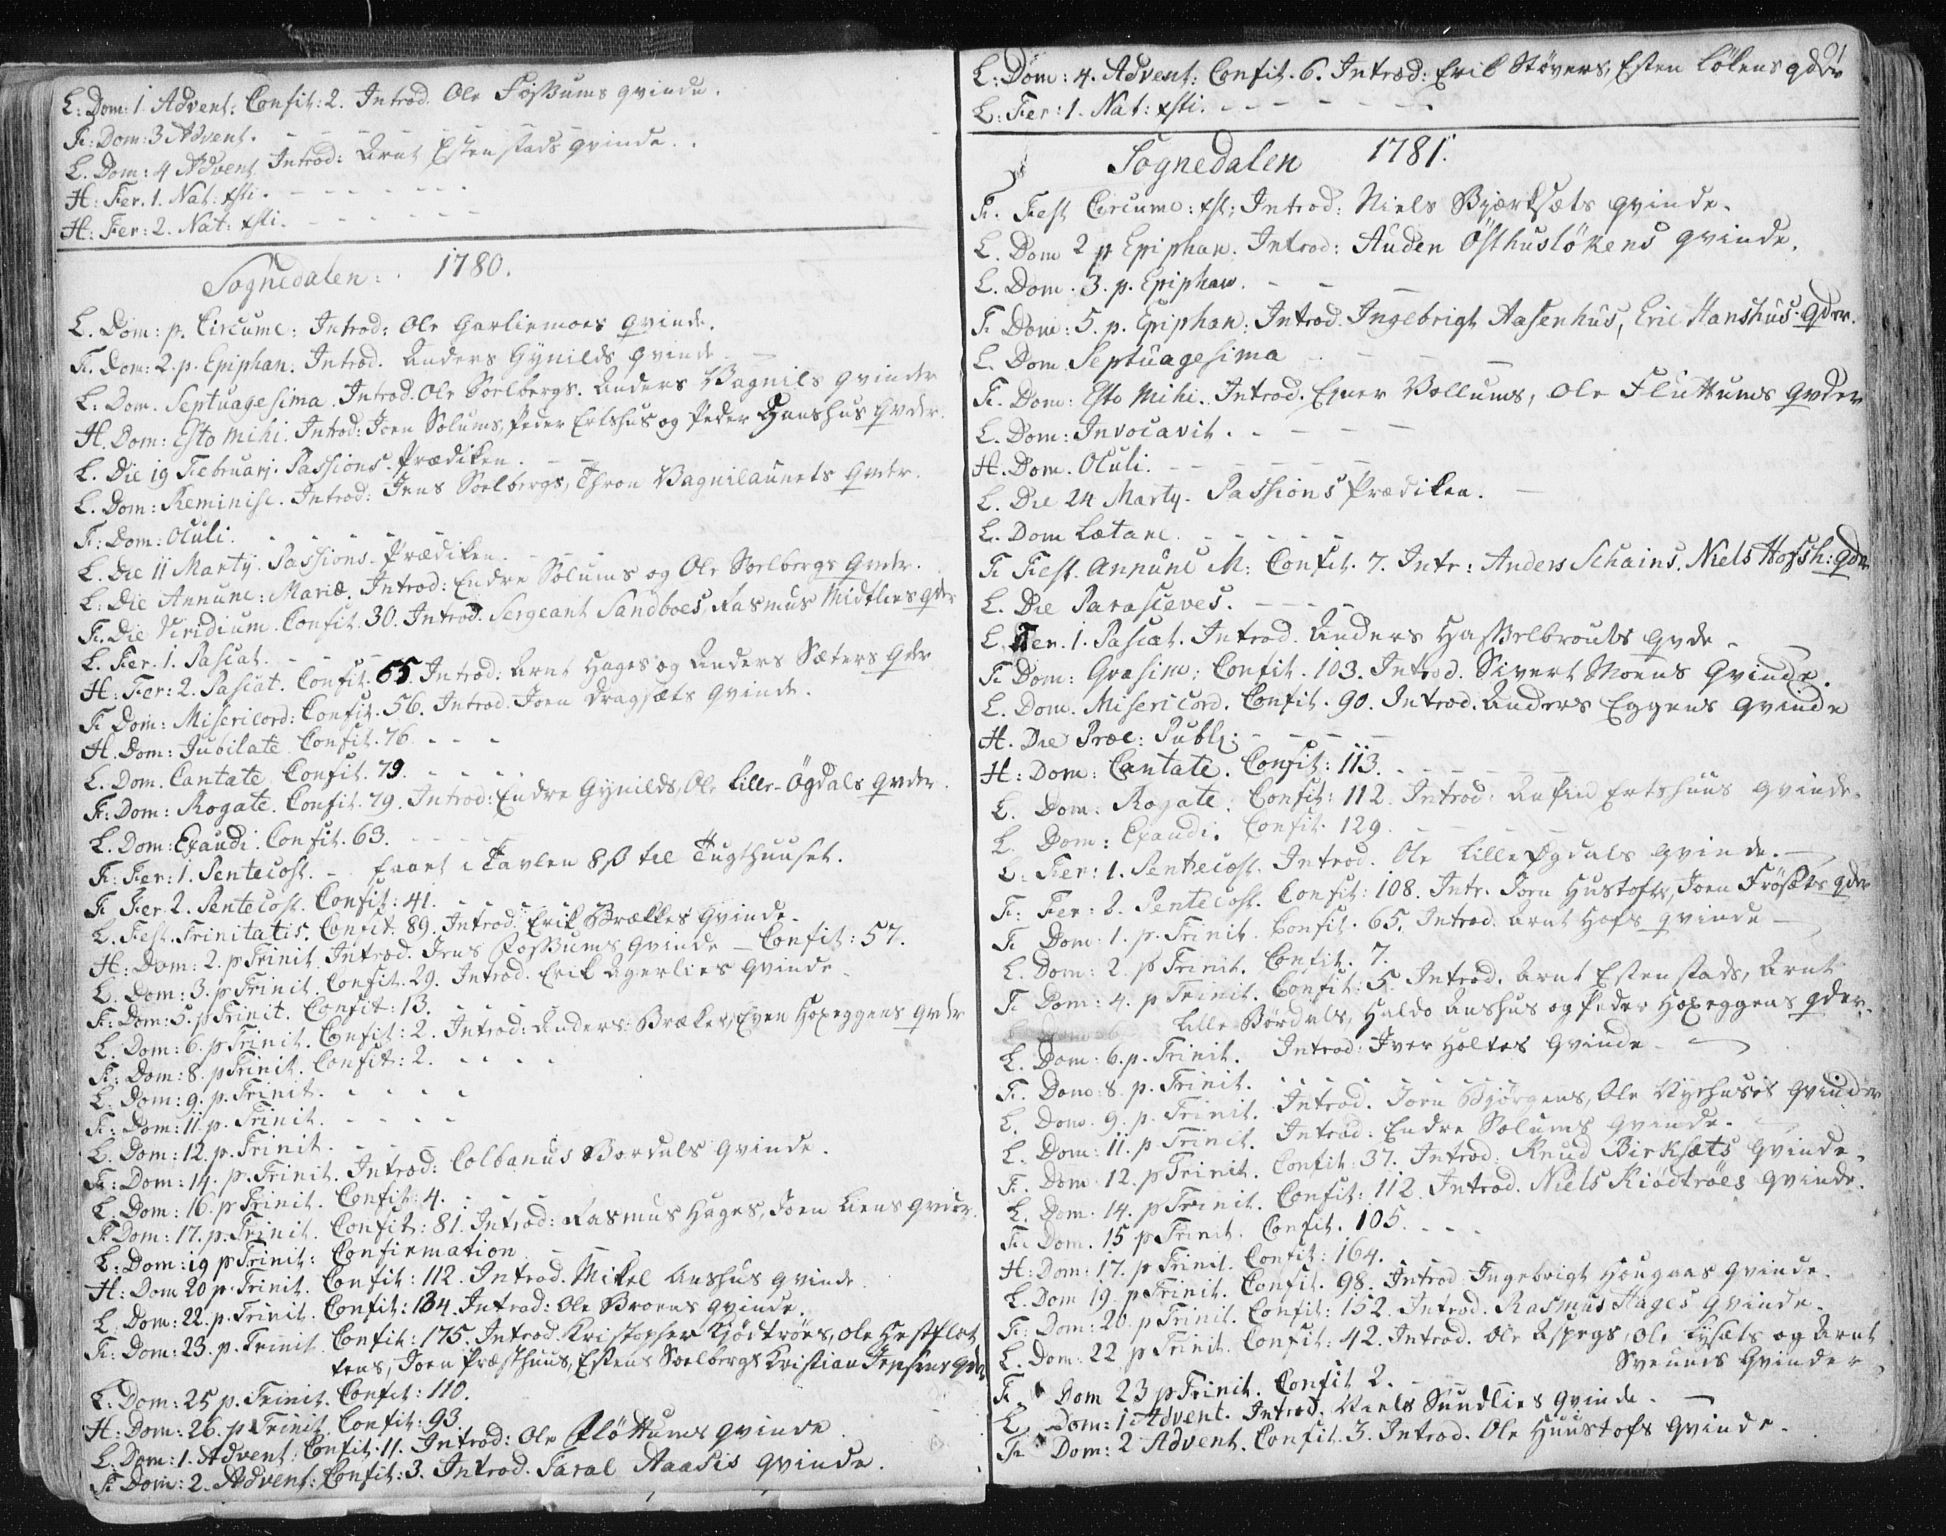 L: Dom: 1 Advent: Confit: 2. Introd. Ole Fossums qvinde.
F: Dom: 3 Advent. - - - - -
L. Dom: 4 Advent Introd: Arnt Estenstads qvinde..
H: Fer. 1. Nat: xsti. - - - - - - -
H: Fer: 2. Nat: xsti. - - - - - -
Sognedalen: 1780.
L. Dom: p. Circumc: Introd: Ole Garliemoes qvinde.
F. Dom: 2. p. Epiphan. Introd. Anders Gynilds qvinde -
L: Dom. Septuagesima. Introd. Ole Soelbergs. Anders Vagnils qvinder
H. Dom: Esto mihi. Introd: Joen Solums, Peder Ertshus og Peder Hanshus qvdr.
L. Die 19 Februarj. Passions-Prædiken. - -
L. Dom: Reminisc. Introd: Jens Soelbergs, Thron Vagnilaunets qvdr.
F: Dom: Oculi. - - - - -
L. Die 11 Martij. Passions-Prædiken. - - -
L: Die Annunc: Mariæ. Introd: Endre Solums og Ole Soelbergs qvdr.
F. Die Viridium. Confit. 30. Introd. Sergeant Sandboes, Rasmus Midtlies qvdr
L. Fer. 1. Pascat. - - - -
H: Fer: 2. Pascat. Confit. 65 Introd: Arnt Hages og Anders Sæters qvdr
F. Dom: Misericord: Confit. 56. Introd. Joen Dragsæts qvinde.
H. Dom: Jubilate. Confit. 76. - - -
L. Dom. Cantate. Confit. 79. - - - -
F: Dom: Rogate. Confit. 79. Introd: Endre Gynilds, Ole Lille-Ögdals qvdr.
L. Dom: Exaudi. Confit. 63. - - - -
F: Fer: 1. Pentecost. - faaet i Tavlen 8 ß til Tugthuuset.
F. Fer 2. Pentecost. Confit: 41. - - - -
L. Fest. Trinitatis. Confit. 89. Introd. Erik Brækkes qvinde.
H: Dom: 2. p Trinit. Introd. Jens Fossums qvinde - Confit: 57.
L. Dom: 3. p Trinit. Confit. 29. Introd. Erik Agerlies qvinde.
F: Dom: 5. p Trinit. Confit: 13. - - - -
L. Dom: 6. p Trinit. Confit: 2. Introd: Anders Brækes, Even Hoxeggens qvdr
F: Dom: 8. p Trinit. Confit: 2. - - - -
L. Dom: 9. p. Trinit. - - - -
F: Dom: 11. p. Trinit. - - - -
L. Dom: 12. p. Trinit. - - - -
F: Dom: 14. p. Trinit. Introd: Colbanus Bordals qvinde.
L. Dom: 16. p Trinit. Confit: 4. - - -
F Dom: 17. p. Trinit. Confit: 81. Introd: Rasmus Hages, Joen Liens qvdr.
L: Dom: 19 p Trinit: Confirmation - -
H: Dom 20 p. Trinit. Confit: 112. Introd. Mikel Aushus qvinde
L. Dom: 22. p. Trinit. Confit: 134. Introd: Ole Broens qvinde.
F: Dom: 23. p. Trinit Confit: 175. Introd. Kristopher Kjödtröes, Ole Hestflot
tens, Joen Præsthuus, Estens Soelbergs Kristian Jensens qvdr
L. Dom: 25 p. Trinit. Confit: 110.
H: Dom: 26. p Trinit. Confit: 93.
L. Dom: 1. Advent: Confit. 11. Introd: Ole Flöttums qvinde
F. Dom: 2. Advent: Confit: 3. Introd. Taral Aasis qvinde.
L: Dom: 4. Advent: Confit. 6. Introd: Erik Stövers, Esten Lölens qdr
L: Fer: 1. Nat: xsti. - - - - - -
Sognedalen 1781.
F. Fest Circumc: xst; Introd: Niels Bjerksæts qvinde.
L. Dom 2 p Epiphan. Introd: Auden Östhuslökens qvinde.
L. Dom. 3. p. Epiphan. - - -
F. Dom: 5. p. Epiphan. Introd. Ingebrigt Aasenhus, Eric Hanshus qder.
L. Dom. Septuagesima - - - -
F. Dom: Esto Mihi. Introd. Ener Vollums, Ole Fluttums qvder
L. Dom: Invocavit. - - - - -
H. Dom. Oculi. - - - - -
L. Die 24 Martij. Passions Prædiken. -
L. Dom Lætare. - - - - -
F. Fest. Annunc M: Confit. 7. Intr: Anders Schains. Niels Hofsh: qdr
L. Die Parasceves. - - - -
L Fer. 1. Pascat. Introd. Anders Hasselbrouts qvde -
F Dom: Qvasim: Confit. 103. Introd. Sivert Moens qvinde.
L. Dom. Misericord. Confit. 90. Introd. Anders Eggens qvinde
H. Die Præc: Publ: - - - -
H: Dom: Cantate. Confit: 113. - - - -
L. Dom: Rogate. Confit: 112. Introd: Ertshuus qvinde.
L. Dom: Exaudi. Confit. 129. - - -
L: Fer: 1. Pentecost. Introd. Ole Lille Ögdals qvinde. -
F: Fer: 2. Pentecost. Confit: 108. Intr. Joen Hustofts, Joen Frösæts qdr
F. Dom: 1. p. Trinit. Confit. 65. Introd. Arnt Hofs qvinde -
L. Dom: 2. p Trinit. Confit. 7.
F Dom: 4. p Trinit. Confit: 5. Introd. Arnt Estenstads, Arnt
Lille Bördals, Haldo Aushus og Peder Hoxeggens qder.
L. Dom: 6. p. Trinit. Introd: Iver Holtes qvinde -
F. Dom: 8. p. Trinit. - - - - -
L. Dom. 9. p. Trinit. Introd. Joen Björgens, Ole Nyehuset qvinder
L. Dom: 11. p Trinit. Introd: Endre Solums qvinde.
F. Dom 12. p Trinit. Confit: 37. Introd: Knud Birksæts qvinde.
L. Dom: 14. p Trinit. Confit: 112. Introd. Niels Kiödtröes qvinde.
F: Dom. 15 p Trinit. Confit. 105. - - -
H: Dom: 17. p Trinit. Confit: 164.
L. Dom 19. p Trinit. Confit. 98. Introd Ingebrigt Hougaas qvinde.
F: Dom: 20. p Trinit. Confit: 152. Introd. Rasmus Hages qvinde.
L. Dom: 22 p Trinit. Confit: 42. Introd. Ole Aspegs, Ole Lysæts og Arnt
Sveunes qvinder
F. Dom 23 p Trinit. Confit 2. - -
L. Dom: 1 Advent. Introd. Niels Sundlies qvinde. -
F. Dom: 2 Advent. Confit. 3. Introd. Ole Huustofs qvinde.